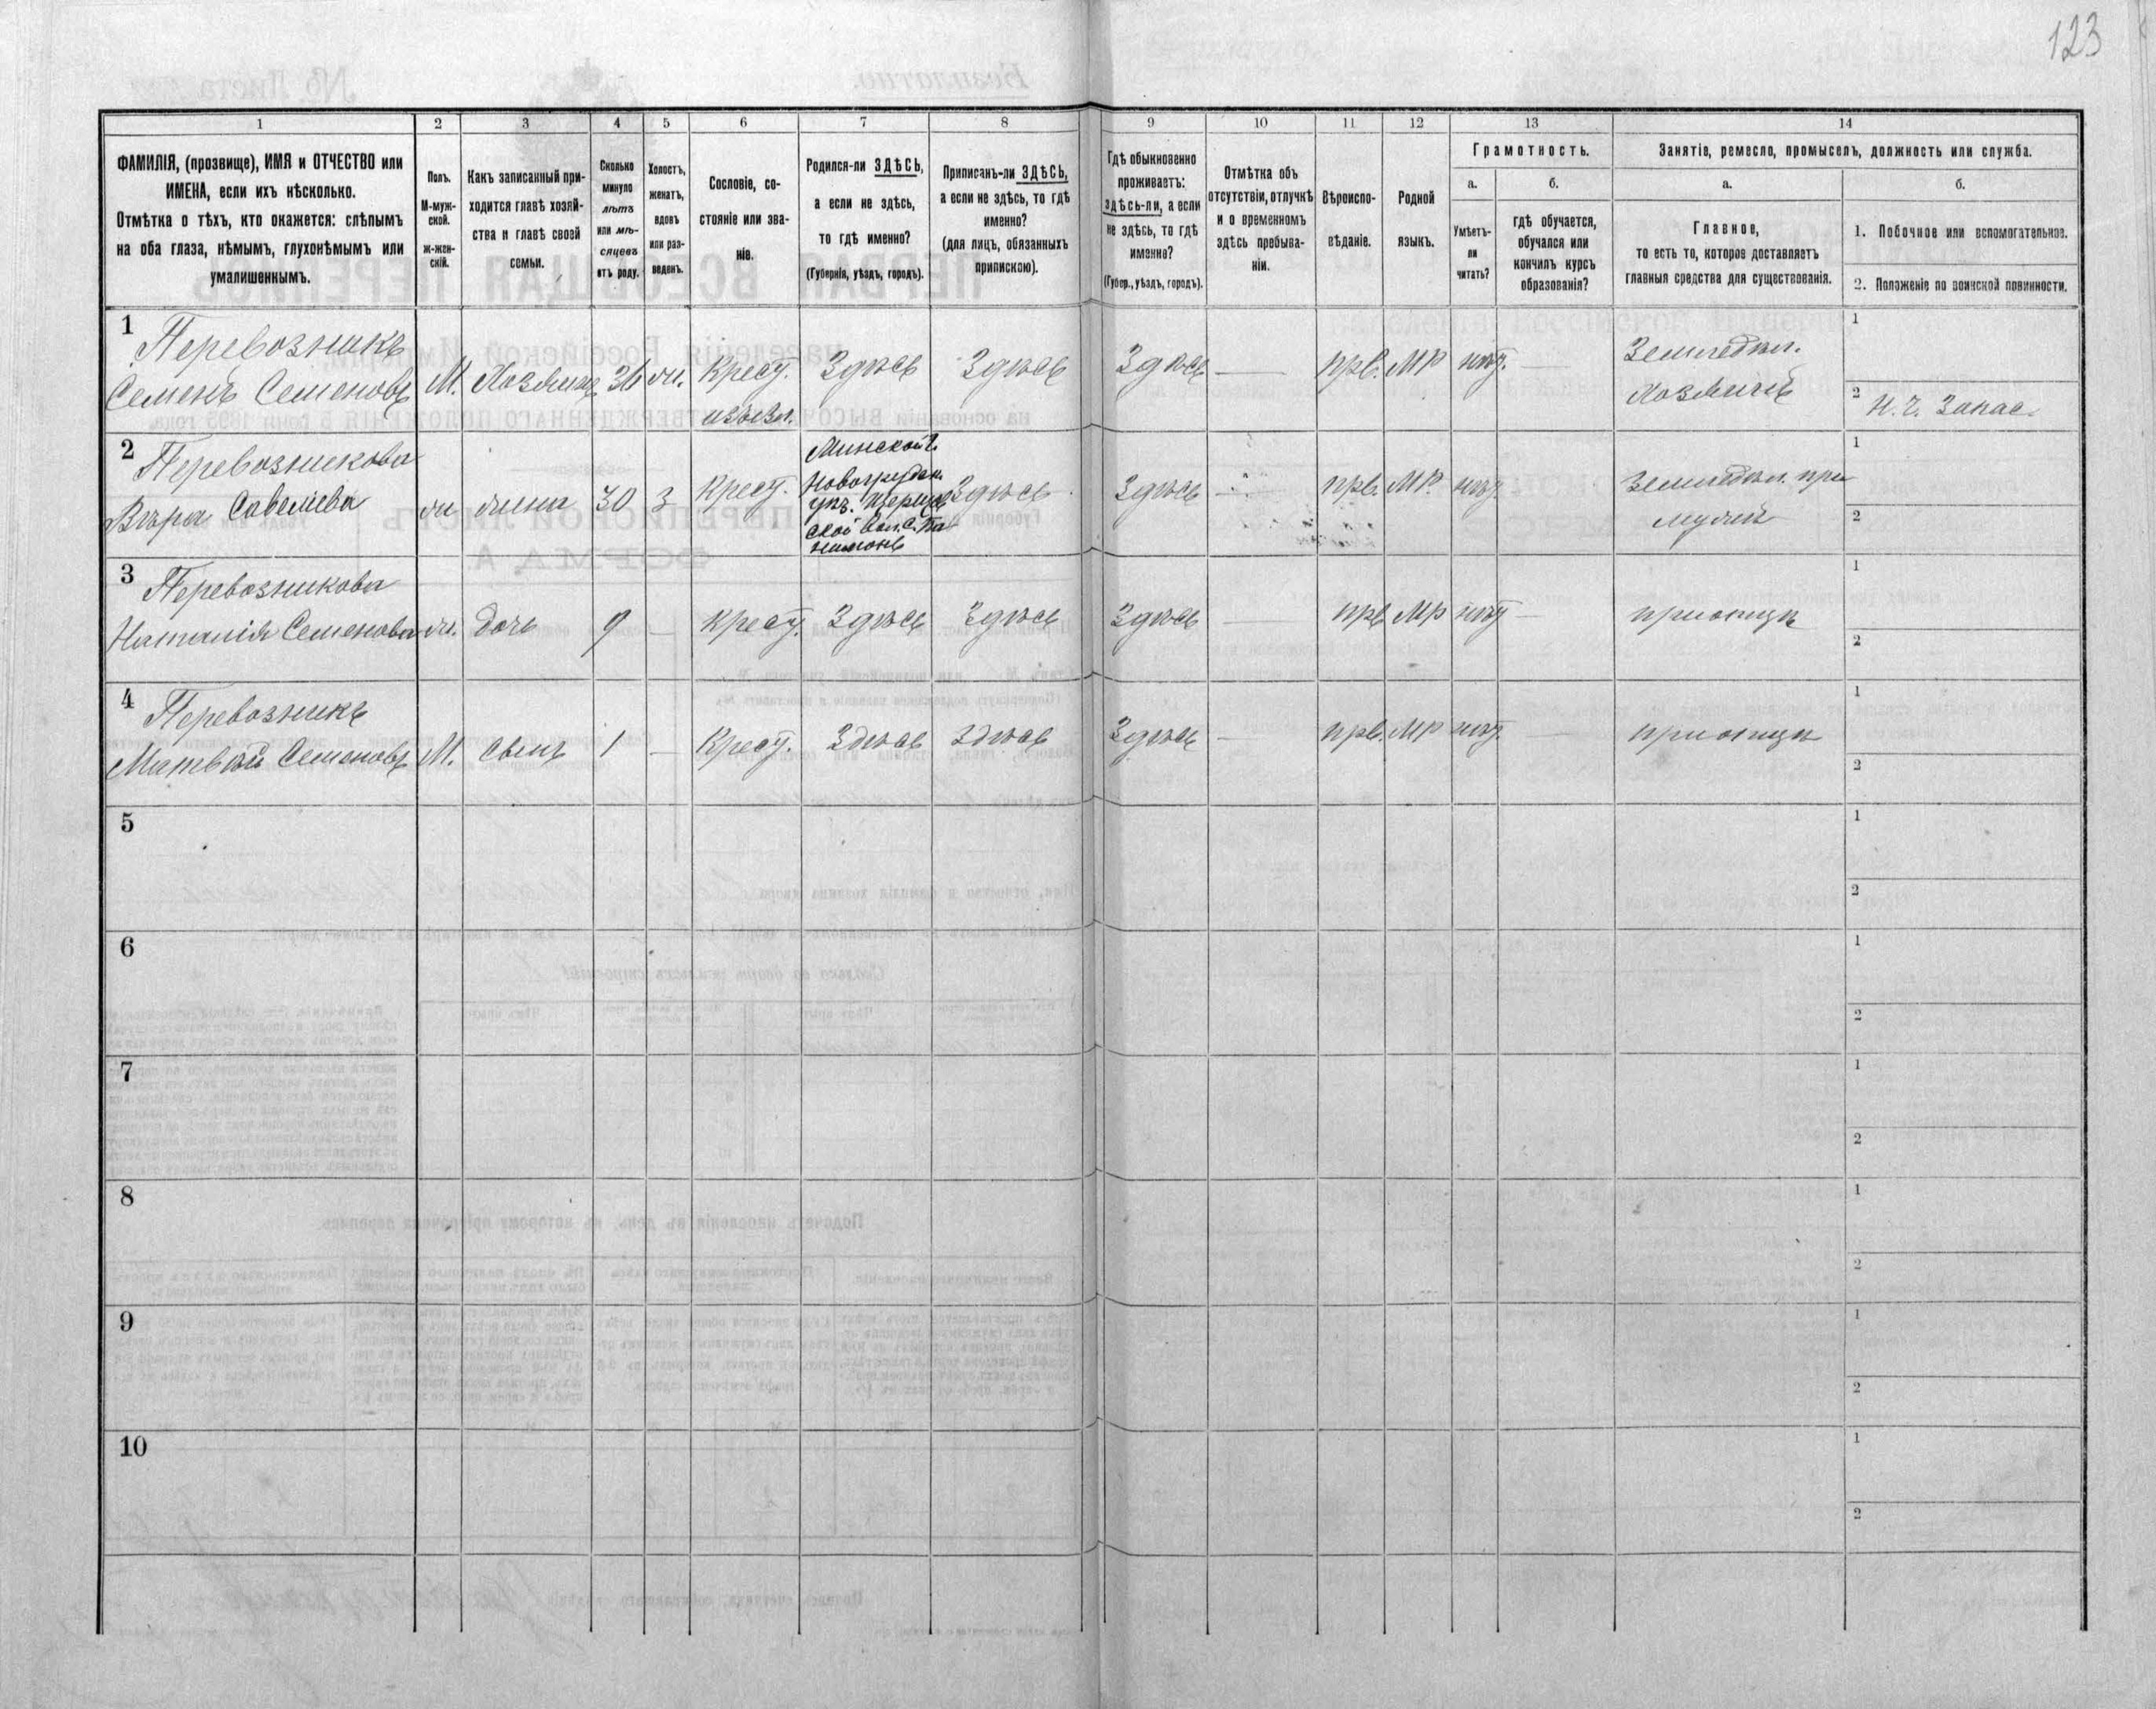 123
1 2 3 4 5 6 7 8 9 10 11 12 13 14
ФАМИЛІЯ, (прозвище), ИМЯ и ОТЧЕСТВО или
ИМЕНА, если ихъ нѣсколько.
Отмѣтка о тѣхъ, кто окажется: слѣпымъ
на оба глаза, нѣмымъ, глухонѣмымъ или
умалишеннымъ.
Полъ.
М-муж-
ской.
ж-жен-
скій.
Какъ записанный при-
ходится главѣ хозяй-
ства и главѣ своей
семьи.
Сколько
минуло
лѣтъ
или мѣ-
сяцевъ
отъ роду.
Холостъ,
женатъ,
вдовъ
или раз-
веденъ.
Сословіе, со-
стояніе или зва-
ніе.
Родился-ли ЗДѢСЬ,
а если не здѣсь,
то гдѣ именно?
(Губернія, уѣздъ, городъ).
Приписанъ-ли ЗДѢСЬ,
а если не здѣсь, то гдѣ
именно?
(для лицъ, обязанныхъ
припискою).
Гдѣ обыкновенно
проживаетъ:
здѣсь-ли, а если
не здѣсь, то гдѣ
именно?
(Губер., уѣздъ, городъ).
Отмѣтка объ
отсутствіи, отлучкѣ
и о временномъ
здѣсь пребыва-
ніи.
Вѣроиспо-
вѣданіе.
Родной
языкъ.
Грамотность.
а.
Умѣетъ-
ли
читать?
б.
гдѣ обучается,
обучался или
кончилъ курсъ
образованія?
Занятіе, ремесло, промыселъ, должность или служба.
а.
Главное,
то есть то, которое доставляетъ
главныя средства для существованія.
б.
1. Побочное или вспомогательное.
2. Положеніе по воинской повинности.
1
Перевозникъ
Семенъ Семеновъ М. Хозяинъ 36 ж. Крест. Здѣсь Здѣсь Здѣсь — прв. МР нѣт. — Земледѣл.
Хозяинъ
1
2 Н. Ч. Запас.
2
Перевозникова
Вѣра Савелиева ж жена 30 з Крест.
Минской г.
Здѣсь Здѣсь — прв. МР. нѣт Земледѣл. при
мужѣ
1
2
3
Перевозникова
Наталія Семенова ж. дочь 9 — крест. Здѣсь Здѣсь Здѣсь — прв МР нѣт —
1
2
4
Перевозникъ
Матвѣй Семеновъ М. сынъ 1 — Крест. Здѣсь Здѣсь Здѣсь — прв. МР нѣт. —
1
2
5
1
2
6
1
2
7
1
2
8
1
2
9
1
2
10
1
2